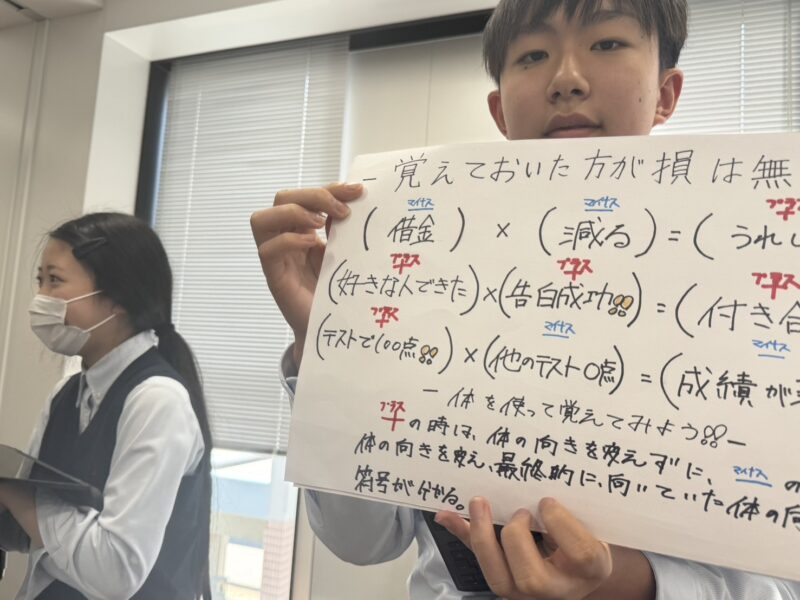 -覚えておいた方が損は無
マイナス マイナス プラス
(借金)×(減る)=(うれし
プラス プラス プラス
(好きな人できた)×(告白成功!!)=(付き合
プラス マイナス マイナス
(テストで100点!!)×(他のテスト0点)=(成績が
-体を使って覚えてみよう!!-
プラス の時は、体の向きを変えずに、マイナス の
体の向きを変え、最終的に、向いていた体の向
符号が分かる。